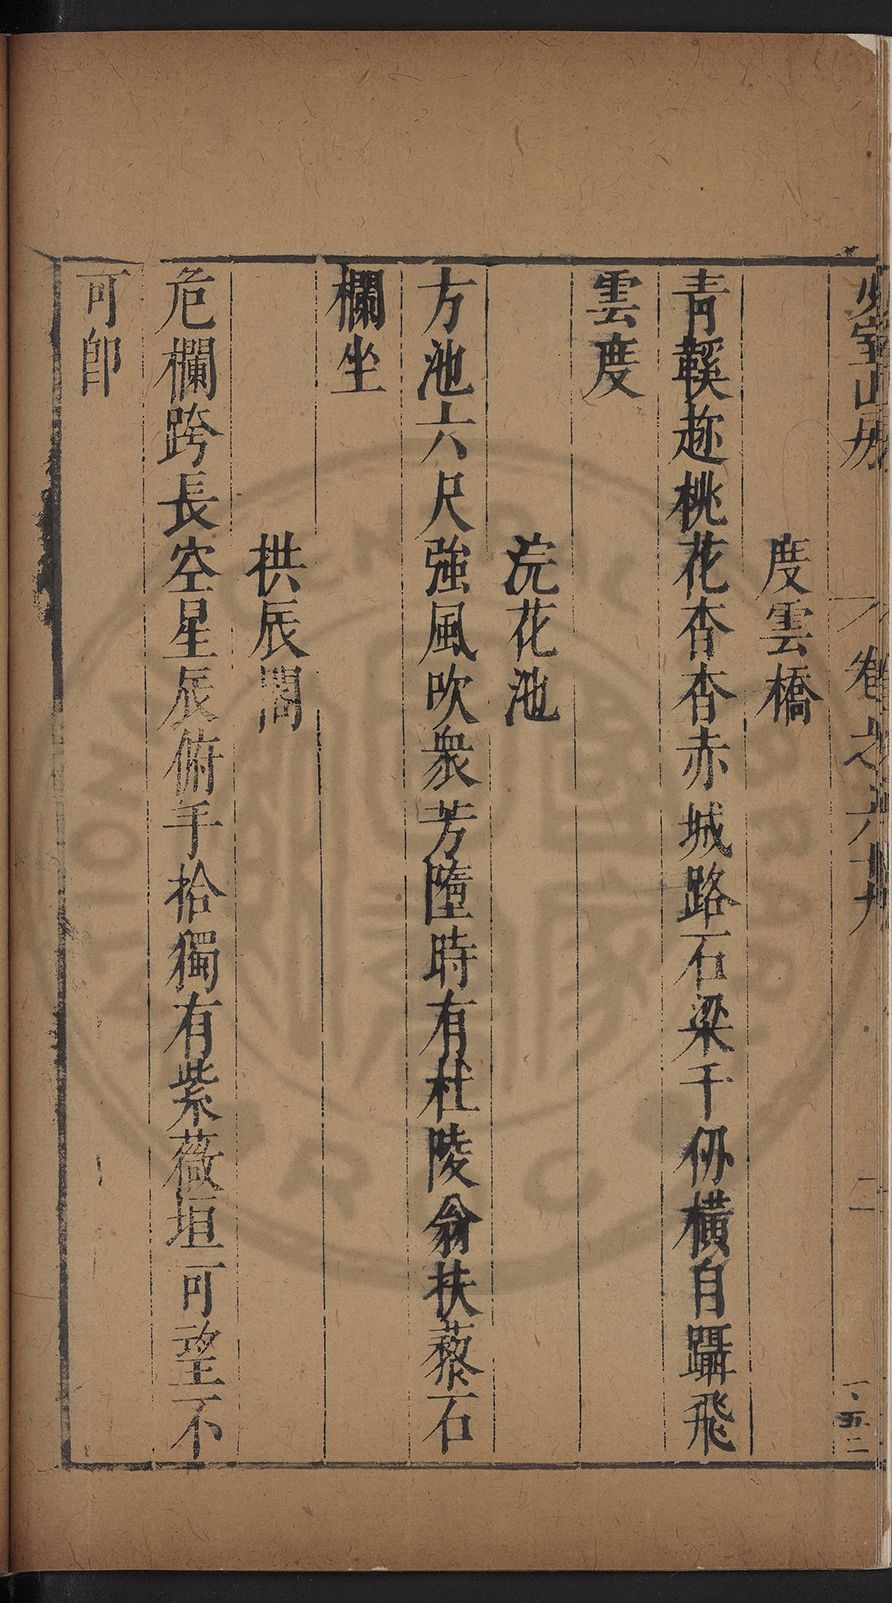 少室山房
卷之六十九
二
度雲橋
青鞵趂桃花杳杳赤城路石梁千仞橫自躡飛
雲度
浣花池
方池六尺強風吹衆芳墮時有杜陵翁扶藜石
欄坐
拱辰閣
危欄跨長空星辰俯手拾獨有紫薇垣可望不
可卽